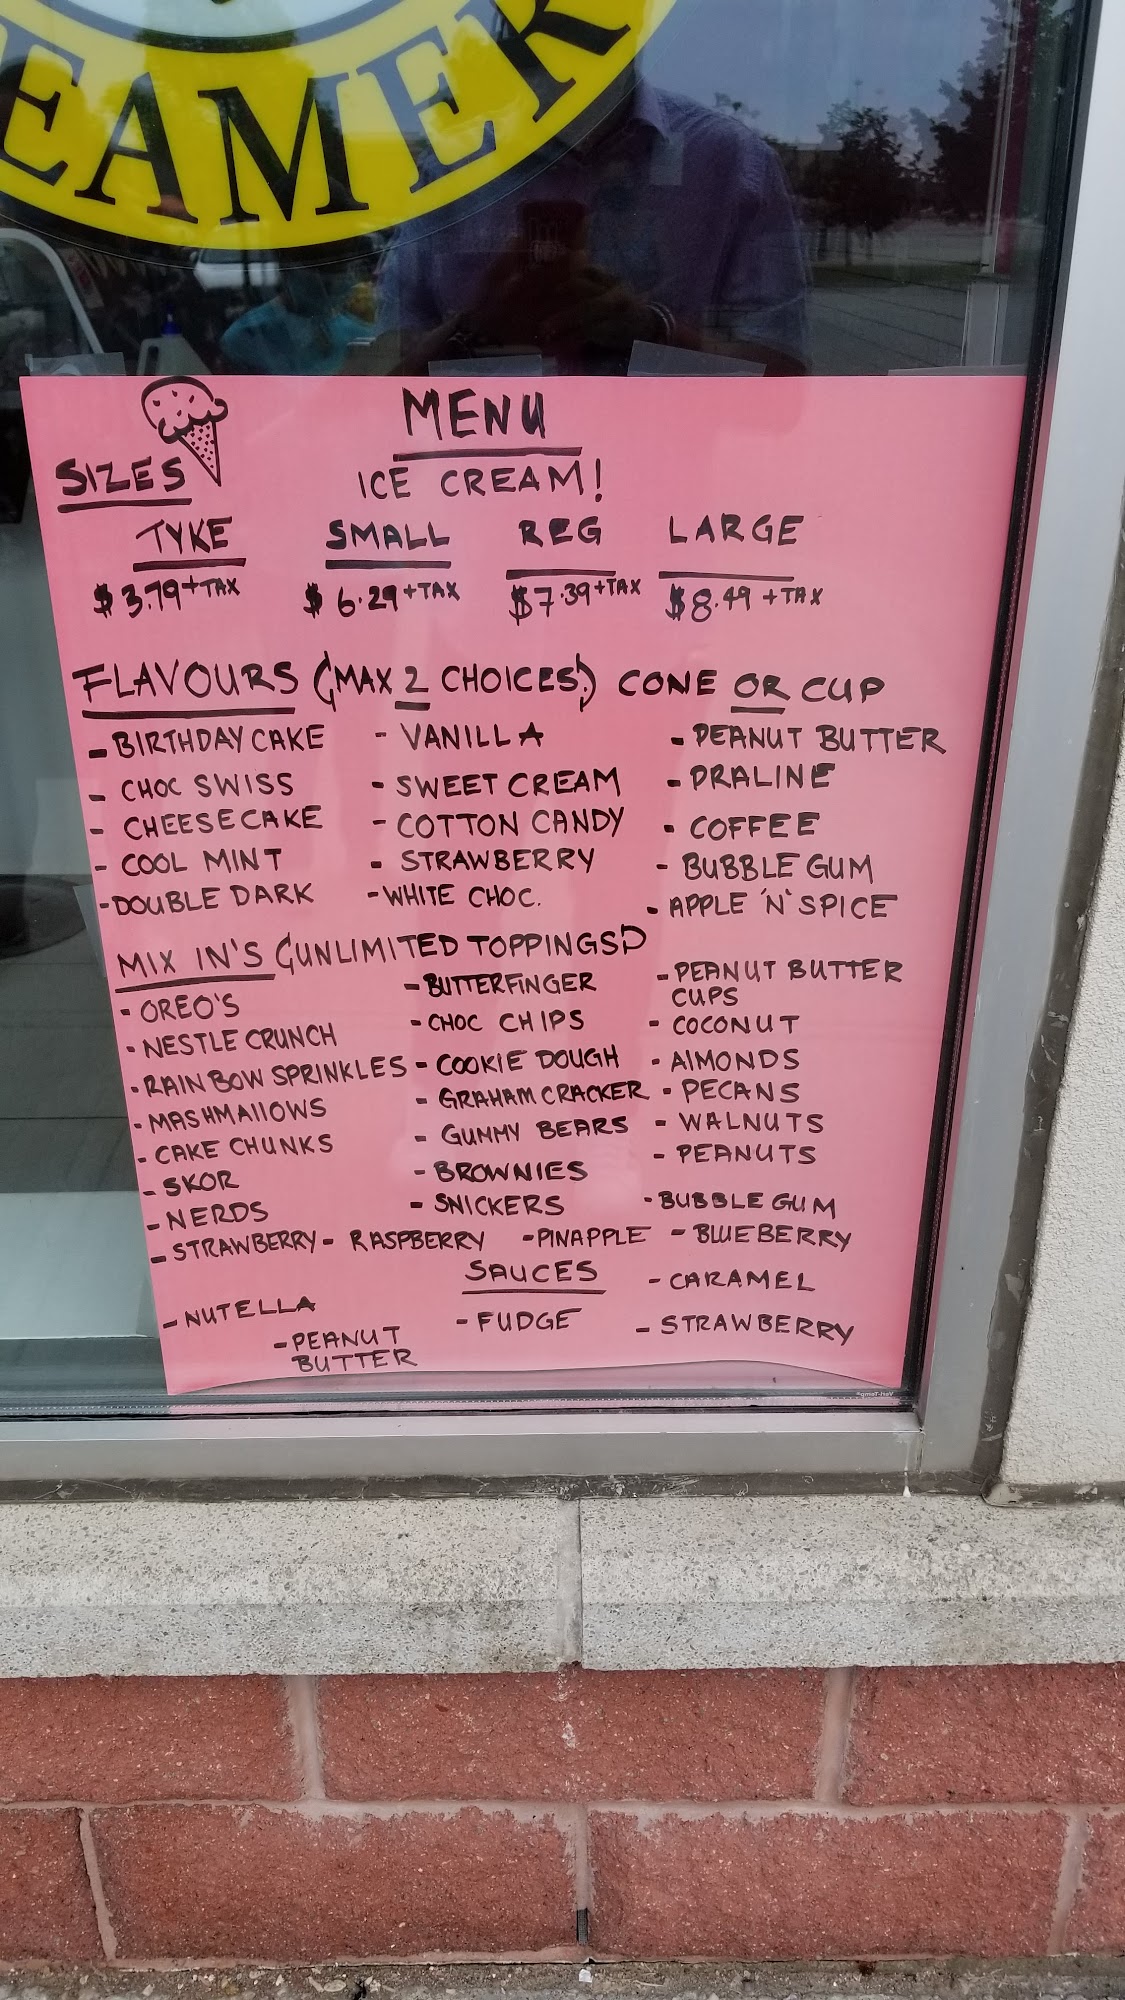 EAMER
MENU
ICE CREAM!
SIZES
TYKE SMALL REG LARGE
$3.79+TAX $6.29+TAX $7.39+TAX $8.49+TAX
FLAVOURS (MAX 2 CHOICES) CONE OR CUP
- BIRTHDAY CAKE - VANILLA - PEANUT BUTTER
- CHOC SWISS - SWEET CREAM - PRALINE
- CHEESECAKE - COTTON CANDY - COFFEE
- COOL MINT - STRAWBERRY - BUBBLE GUM
- DOUBLE DARK - WHITE CHOC. - APPLE 'N' SPICE
MIX IN'S (UNLIMITED TOPPINGS)
- OREO'S - BUTTERFINGER - PEANUT BUTTER CUPS
- NESTLE CRUNCH - CHOC CHIPS - COCONUT
- RAINBOW SPRINKLES - COOKIE DOUGH - AlMONDS
- MASHMAllOWS - GRAHAM CRACKER - PECANS
- CAKE CHUNKS - GUMMY BEARS - WALNUTS
- SKOR - BROWNIES - PEANUTS
- NERDS - SNICKERS - BUBBLE GUM
- STRAWBERRY - RASPBERRY - PINAPPLE - BLUEBERRY
SAUCES
- NUTELLA - FUDGE - CARAMEL
- PEANUT BUTTER - STRAWBERRY